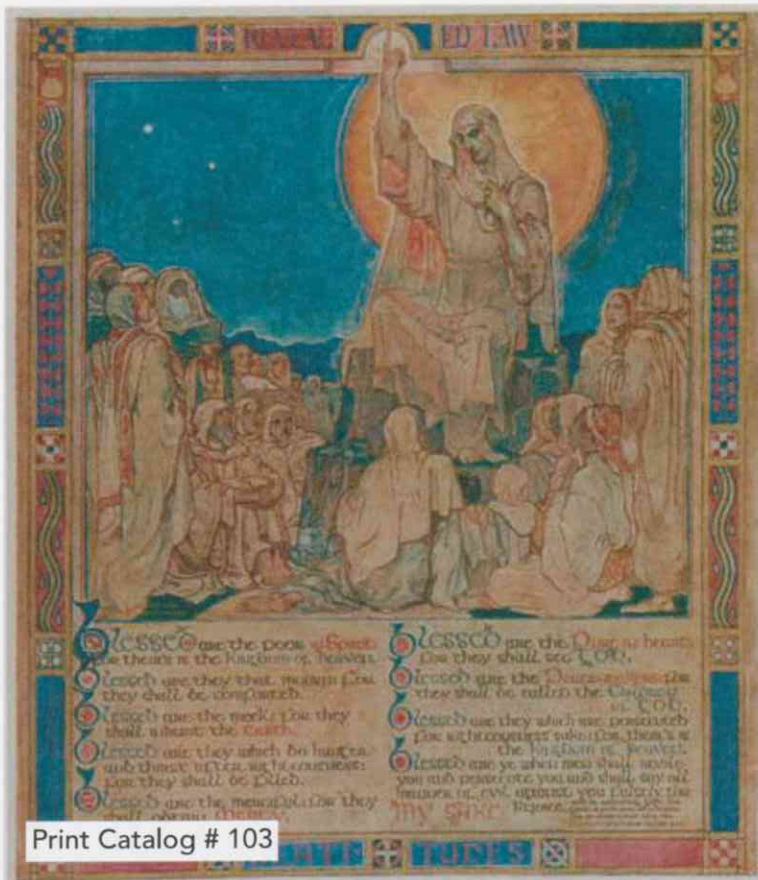 REVEALED LAW
BLESSED are the poor in Spirit
for theirs is the Kingdom of heaven.
Blessed are they that mourn for
they shall be comforted.
Blessed are the meek: for they
shall inherit the earth.
Blessed are they which do hunger
and thirst after righteousness:
for they shall be filled.
Blessed are the merciful: for they
shall obtain Mercy.
BLESSED are the Pure in heart:
for they shall see GOD.
Blessed are the Peacemakers: for
they shall be called the Children
of GOD.
Blessed are they which are persecuted
for righteousness sake: for theirs is
the Kingdom of heaven.
Blessed are ye when men shall revile
you and persecute you and shall say all
manner of evil against you falsely for
my sake Rejoice
TUDES
Print Catalog # 103